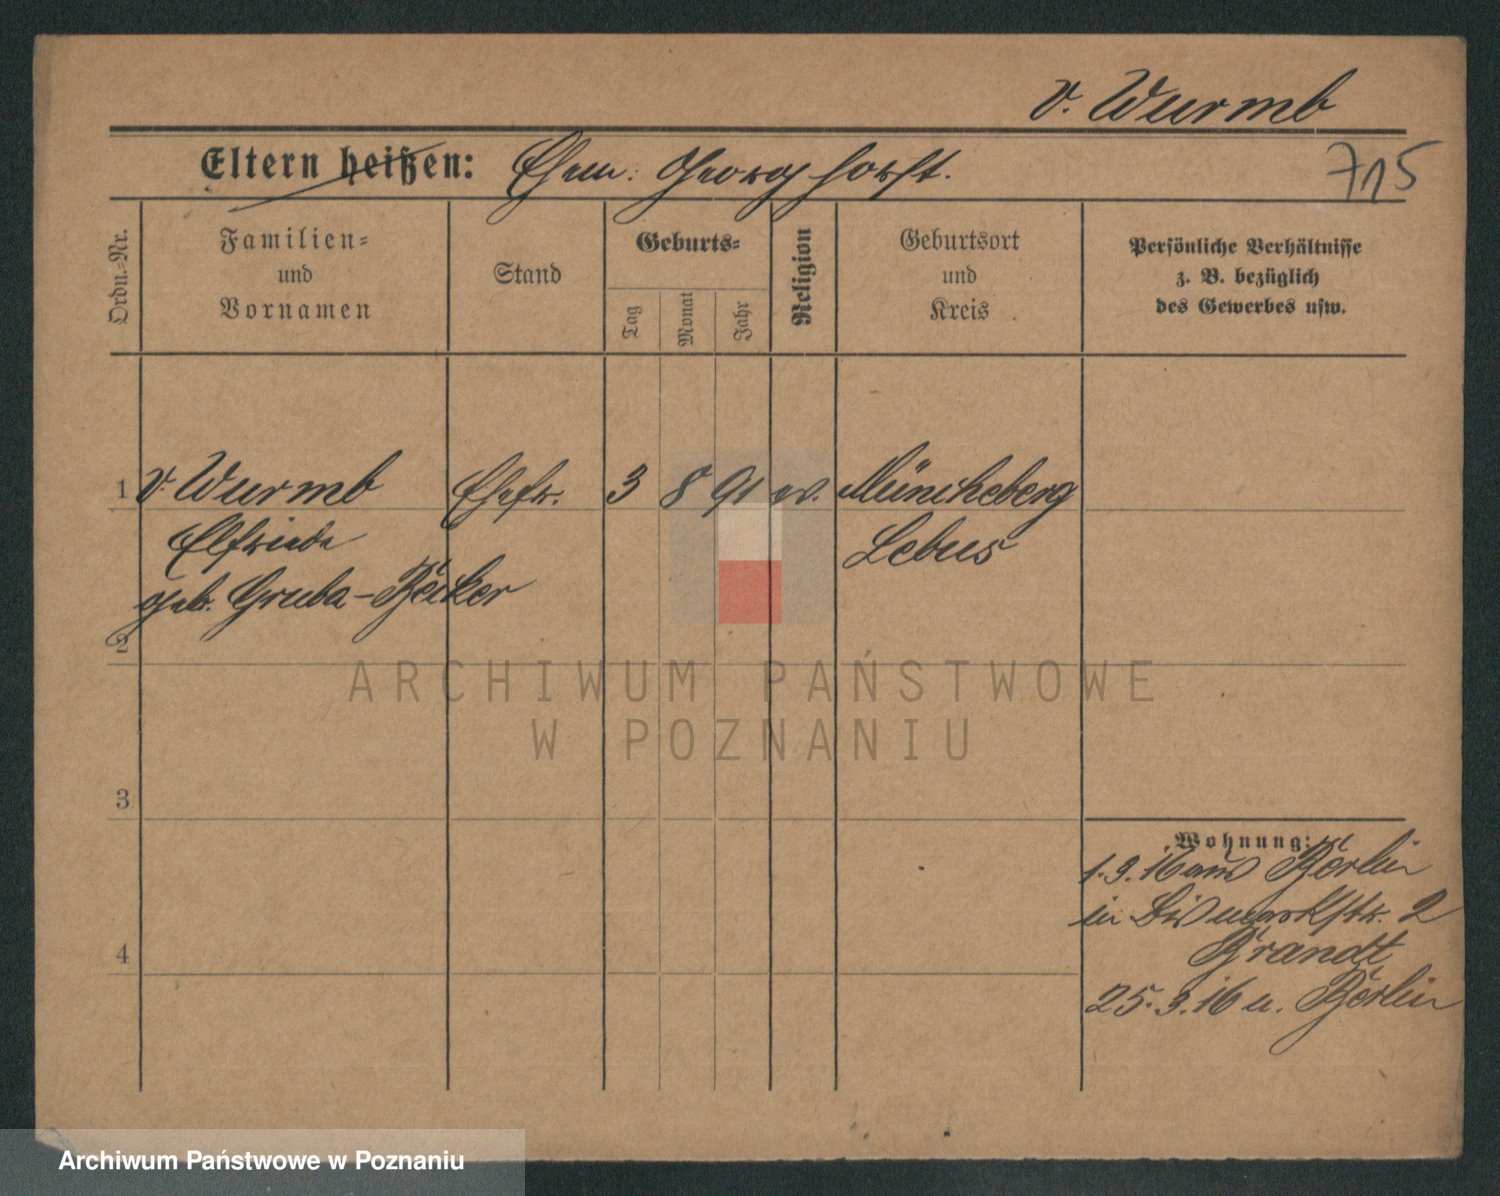 v. Wurmb
Eltern heißen: Ehem. Georg Horst.
715
Ordn.=Nr.
Familien=
und
Vornamen
Stand
Geburts=
Tag
Monat
Jahr
Religion
Geburtsort
und
Kreis
Persönliche Verhältnisse
z. B. bezüglich
des Gewerbes usw.
1 v. Wurmb Ehefr. 3 8 91 ev. Müncheberg
Elfriede Lebus
geb. Gruba-Becker
2
ARCHIWUM PAŃSTWOWE
W POZNANIU
3
Wohnung:
1.3.16 aus Berlin
in Bismarkstr. 2
Brandt
4
25.3.16 n. Berlin
Archiwum Państwowe w Poznaniu